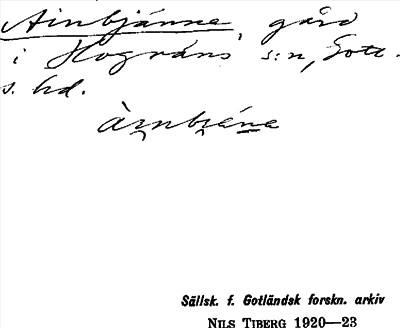 Ainbjänne, gård
i Hogräns s:n, Gotl.
s. hd.
àɪnbɪána
Sällsk. f. Gotländsk forskn. arkiv
NILS TIBERG 1920—23